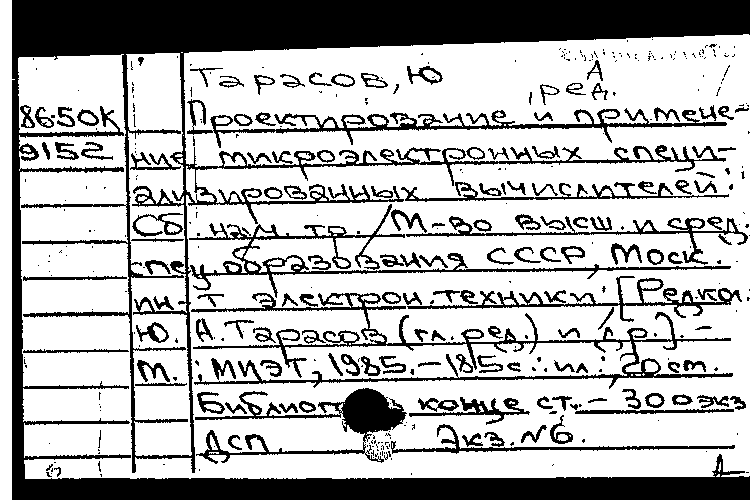 Тарасов, Ю А
, ред.
86-50К Проектирование и примене-
9152 ние микроэлектронных специ-
ализированных вычислителей:
Сб. науч. тр. / М-во высш. и сред.
спец. образования СССР, Моск.
ин-т электрон. техники; [Редкол.:
Ю. А. Тарасов (гл. ред.) и др.]. -
М.: МИЭТ, 1985. - 185 с.: ил.; 20 см.
конце ст. - 300 экз
Дсп. Экз. №6.